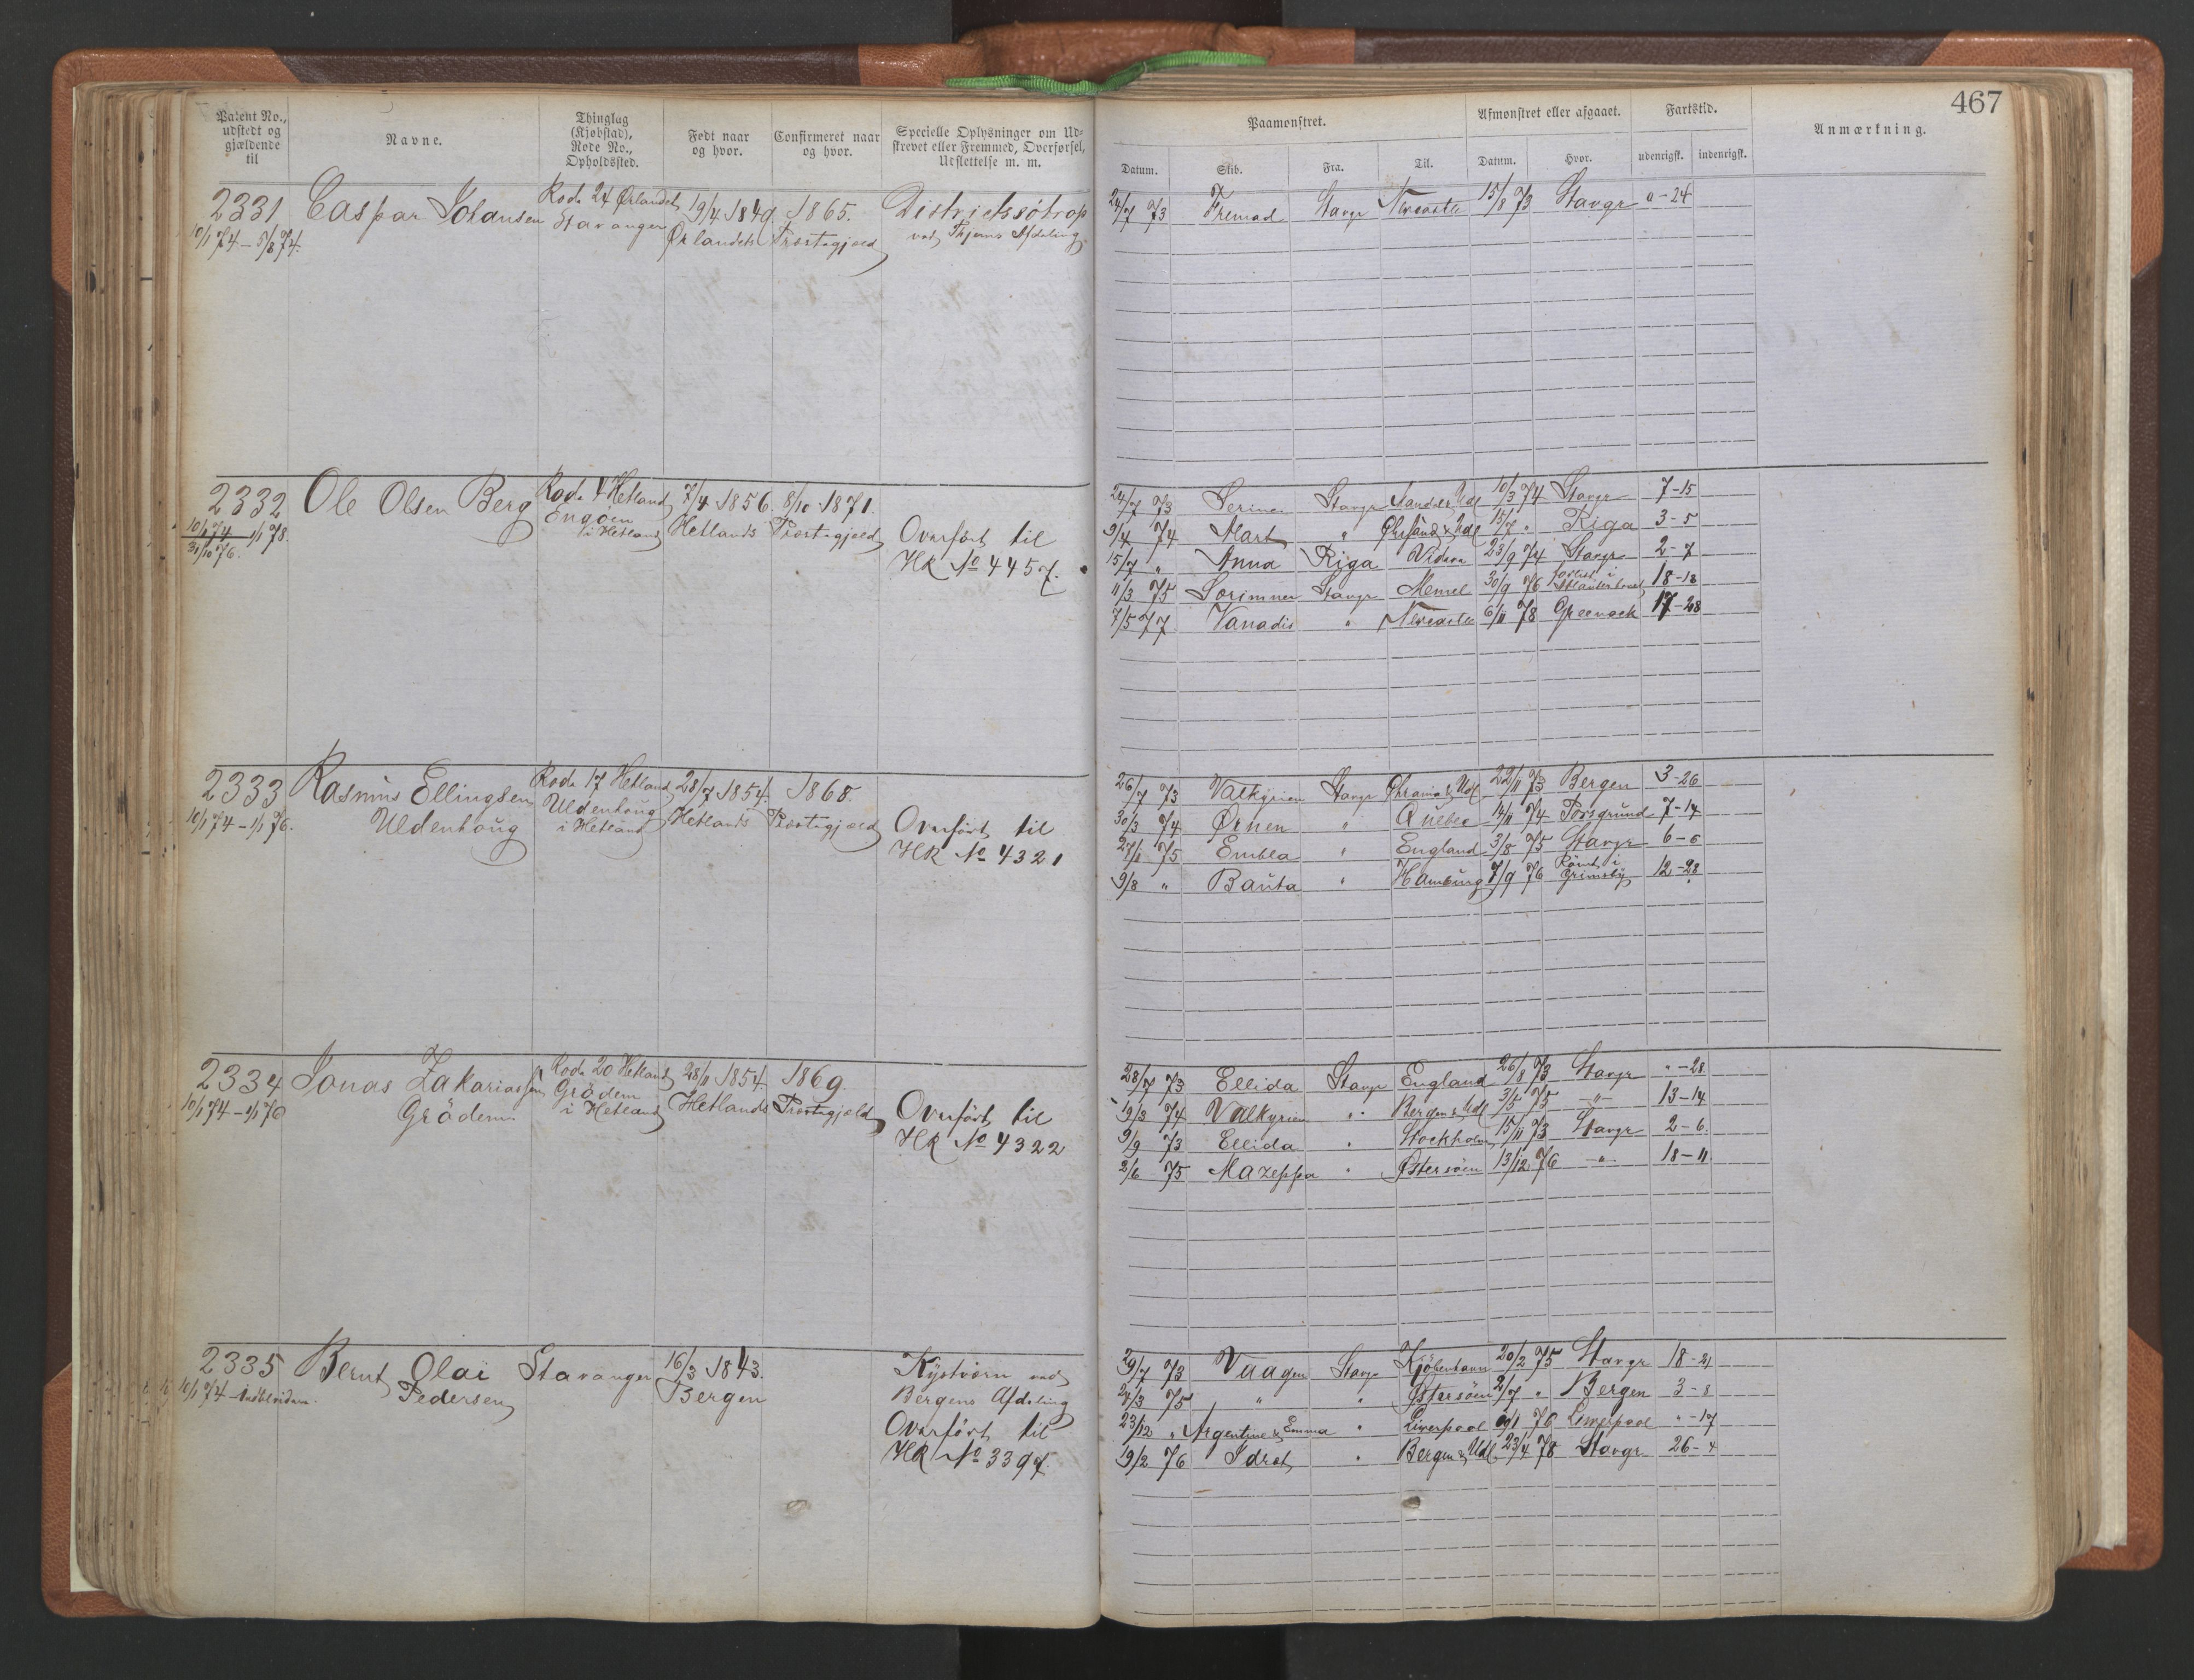 467
Patent No., udstedt og gjældende til
Navne.
Thinglag (Kjøbstad), Rode No., Opholdssted.
Født naar og hvor.
Confirmeret naar og hvor.
Specielle Oplysninger om Udskrevet eller Fremmed, Overførsel, Udslettelse m. m.
Paamonstret.
Afmonstret eller afgaaet.
Fartstid.
Anmærkning.
Datum. Skib. Fra. Til. Datum. Hvor. udenrigsk. indenrigsk.
2331 Caspar Johansen Rode 24 Ørlandet 19/4 1849 1865. Districtssótrop
10/1 74 – 5/8 74. Stavanger Ørlandets Præstegjæld ved Thjems Afdeling
24/7 73 Fremad Stavgr Newcastle 15/8 73 Stavgr 0 – 24
2332 Ole Olsen Berg Rode 4 Hetland 7/4 1856. 8/10 1871.
10/1 74 1/1 78. Engöen i Hetland Hetlands Præstegjæld Overført til
31/10 76. HR No 4457.
24/7 73 Seriner Stavgr Mandal & Udl 10/3 74 Stavgr 7 – 15
9/4 74 Mart " Chrsand & Udl 15/7 " Riga 3 – 5
15/7 " Anna Riga 23/9 74 Stavgr 2 – 7
11/3 75 Sorimner Stavgr Memel 30/9 76 forlist i Atlanterhavet 18 – 18
7/5 77 Vanadis " Newcastle 6/11 78 Greenock 17 – 28
2333 Rasmus Ellingsen Rode 17 Hetland 28/7 1854. 1868.
10/1 74 – 1/1 76. Uldenhoug Uldenhoug i Hetland Hetlands Præstegjæld Overført til
HR No 4321
26/7 73 Valkyrien Stavgr Chrania & Udl 22/11 73 Bergen 3 – 26
30/3 74 Ørnen " Quebec 14/11 74 Porsgrund 7 – 14
27/1 75 Embla " England 3/8 75 Stavgr 6 – 6
9/8 " Bauta " Hamburg 7/9 76 Römt i Grimsby 12 – 28
2334 Jonas Zakariassen Rode 20 Hetland 28/11 1854. 1869.
10/1 74 – 1/1 76 Grödem. Grödem i Hetland Hetlands Præstegjæld Overført til
HR No 4322
28/7 73 Ellida Stavgr England 26/8 73 Stavgr " – 28
19/3 74 Valkyrien " Bergen & Udl 3/5 75 " 13 – 14
9/9 73 Ellida " Stockholm 15/11 73 Stavgr 2 – 6.
2/6 75 Mazeppa " Østersöen 13/12 76 " 18 – 11
2335 Bernt Olai Stavanger 16/3 1843. Kystværn ved
10/1 74 – Indtil videre. Pedersen Bergen Bergens Afdeling
Overført til
HR No 3397.
29/7 73 Vaagen Stavgr Kjöbenhavn 20/2 75 Stavgr 18 – 21
24/3 75 " " Østersöen 2/7 " Bergen 3 – 8
23/12 " Argentine & Emma " Liverpool 76 Liverpool " – 17
19/2 76 Idræt " Bergen & Udl. 23/4 78 Stavgr 26 – 4